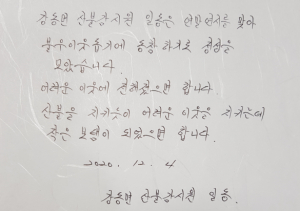 강동면 산불감시원 일동은 연말연시를 맞아
불우이웃돕기에 동참 하기로 정성을
모았습니다.
어려운 이웃에 전해졌으면 합니다.
산불을 지키듯이 어려운 이웃을 지키는데
작은 보탬이 되었으면 합니다.
2020. 12. 4
강동면 산불감시원 일동.